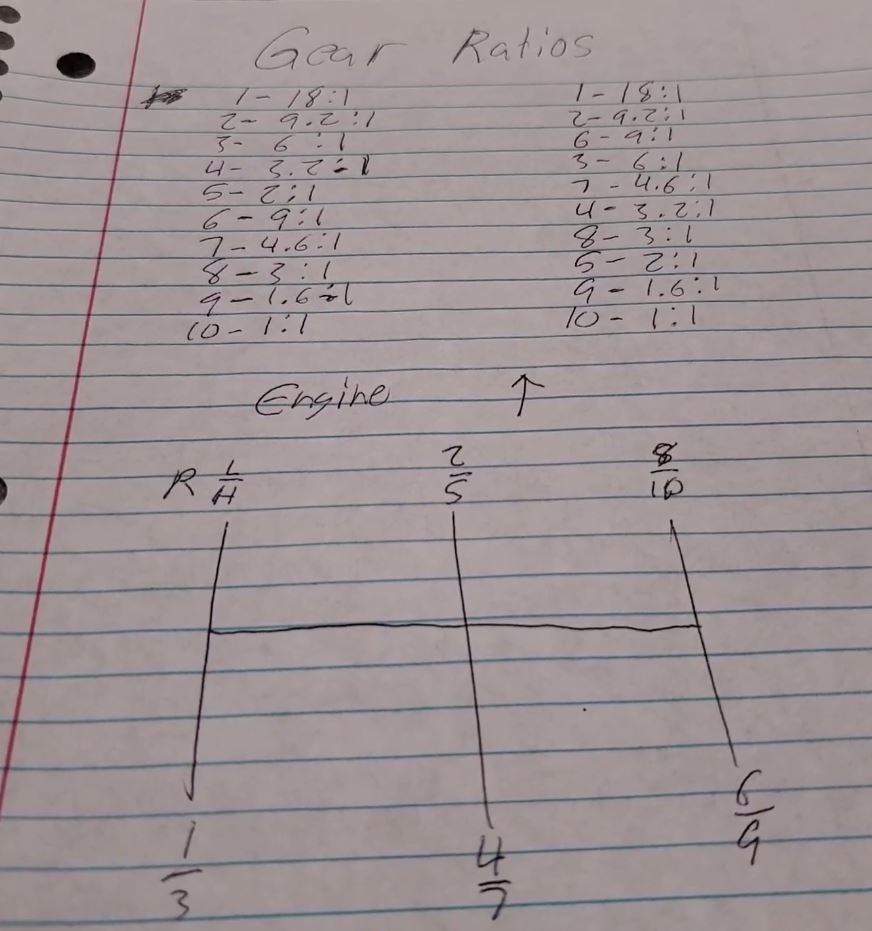 Gear Ratios
1 - 18:1
2 - 9.2:1
3 - 6:1
4 - 3.2:1
5 - 2:1
6 - 9:1
7 - 4.6:1
8 - 3:1
9 - 1.6:1
10 - 1:1
1 - 18:1
2 - 9.2:1
6 - 9:1
3 - 6:1
7 - 4.6:1
4 - 3.2:1
8 - 3:1
5 - 2:1
9 - 1.6:1
10 - 1:1
Engine ↑
R L/H 2/5 8/10
1/3 4/7 6/9